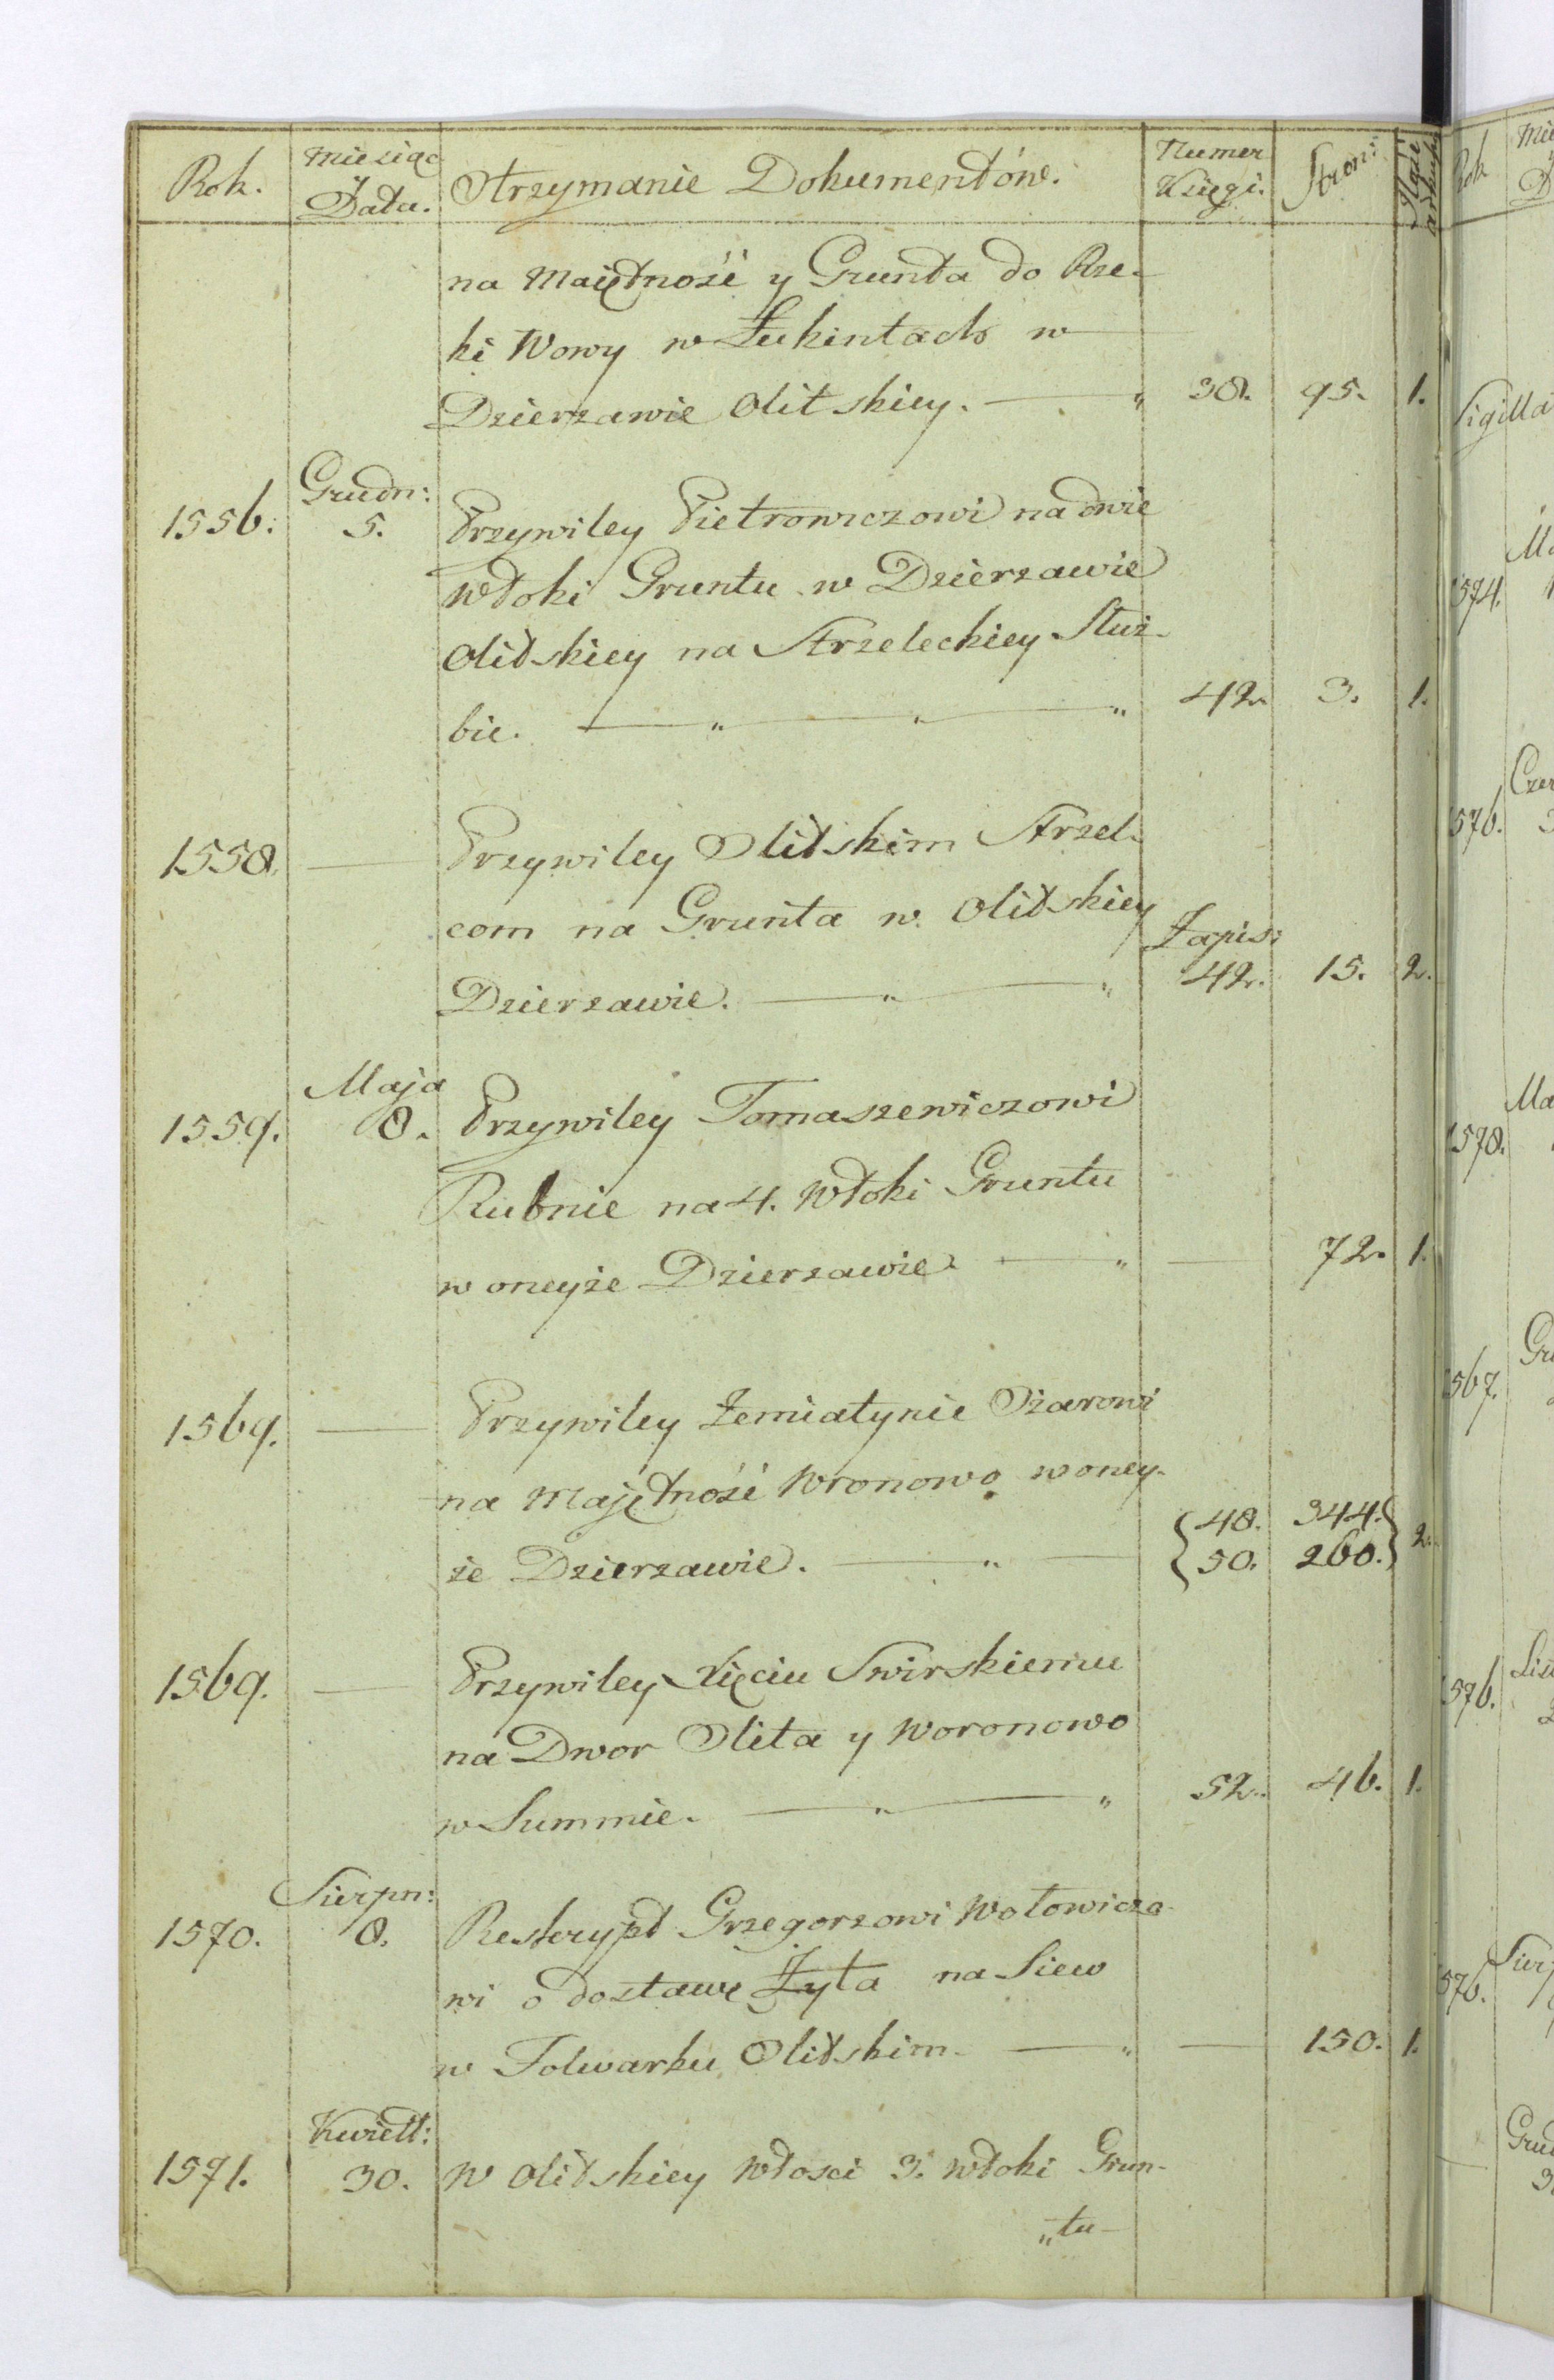 Rok. Miesiąc y Data. Otrzymanie Dokumentów. Numer Księgi. Stron:
na Maiętność y Grunta do Rze-
ki Wowy w Łukintach w
Dzierzawie Olitskiey. — „ 38. 95. 1.
1556. Grudn: 5. Przywiley Pietrowiczowi na dwie
włoki Gruntu w Dzierzawie
Olitskiey na Strzeleckiey Służ-
bie. — „ — „ — „ 42. 3. 1.
1558. — Przywiley Olitskim Strzel-
com na Grunta w Olitskiey
Dzierzawie. — „ — „ Zapis: 42. 15. 2.
1559. Maja 8. Przywiley Tomaszewiczowi
Rubnie na 4. włoki Gruntu
w oneyże Dzierzawie — „ — 72. 1.
1569. — Przywiley Zemiatynie Ożarowi
na Majętność Wronowo w oney-
że Dzierzawie. — „ — { 48. 344. } 2.
{ 50. 260. }
1569. — Przywiley Xięciu Swirskiemu
na Dwor Olita y Woronowo
w Summie. — „ — „ 52. 46. 1.
1570. Sierpn: 8. Reskrypt Grzegorzowi Wołowiczo-
wi o dostawę Żyta na Siew
w Folwarku Olitskim. — „ — 150. 1.
1571. Kwiett: 30. W Olitskiey włosci 3. włoki Grun-
„tu—